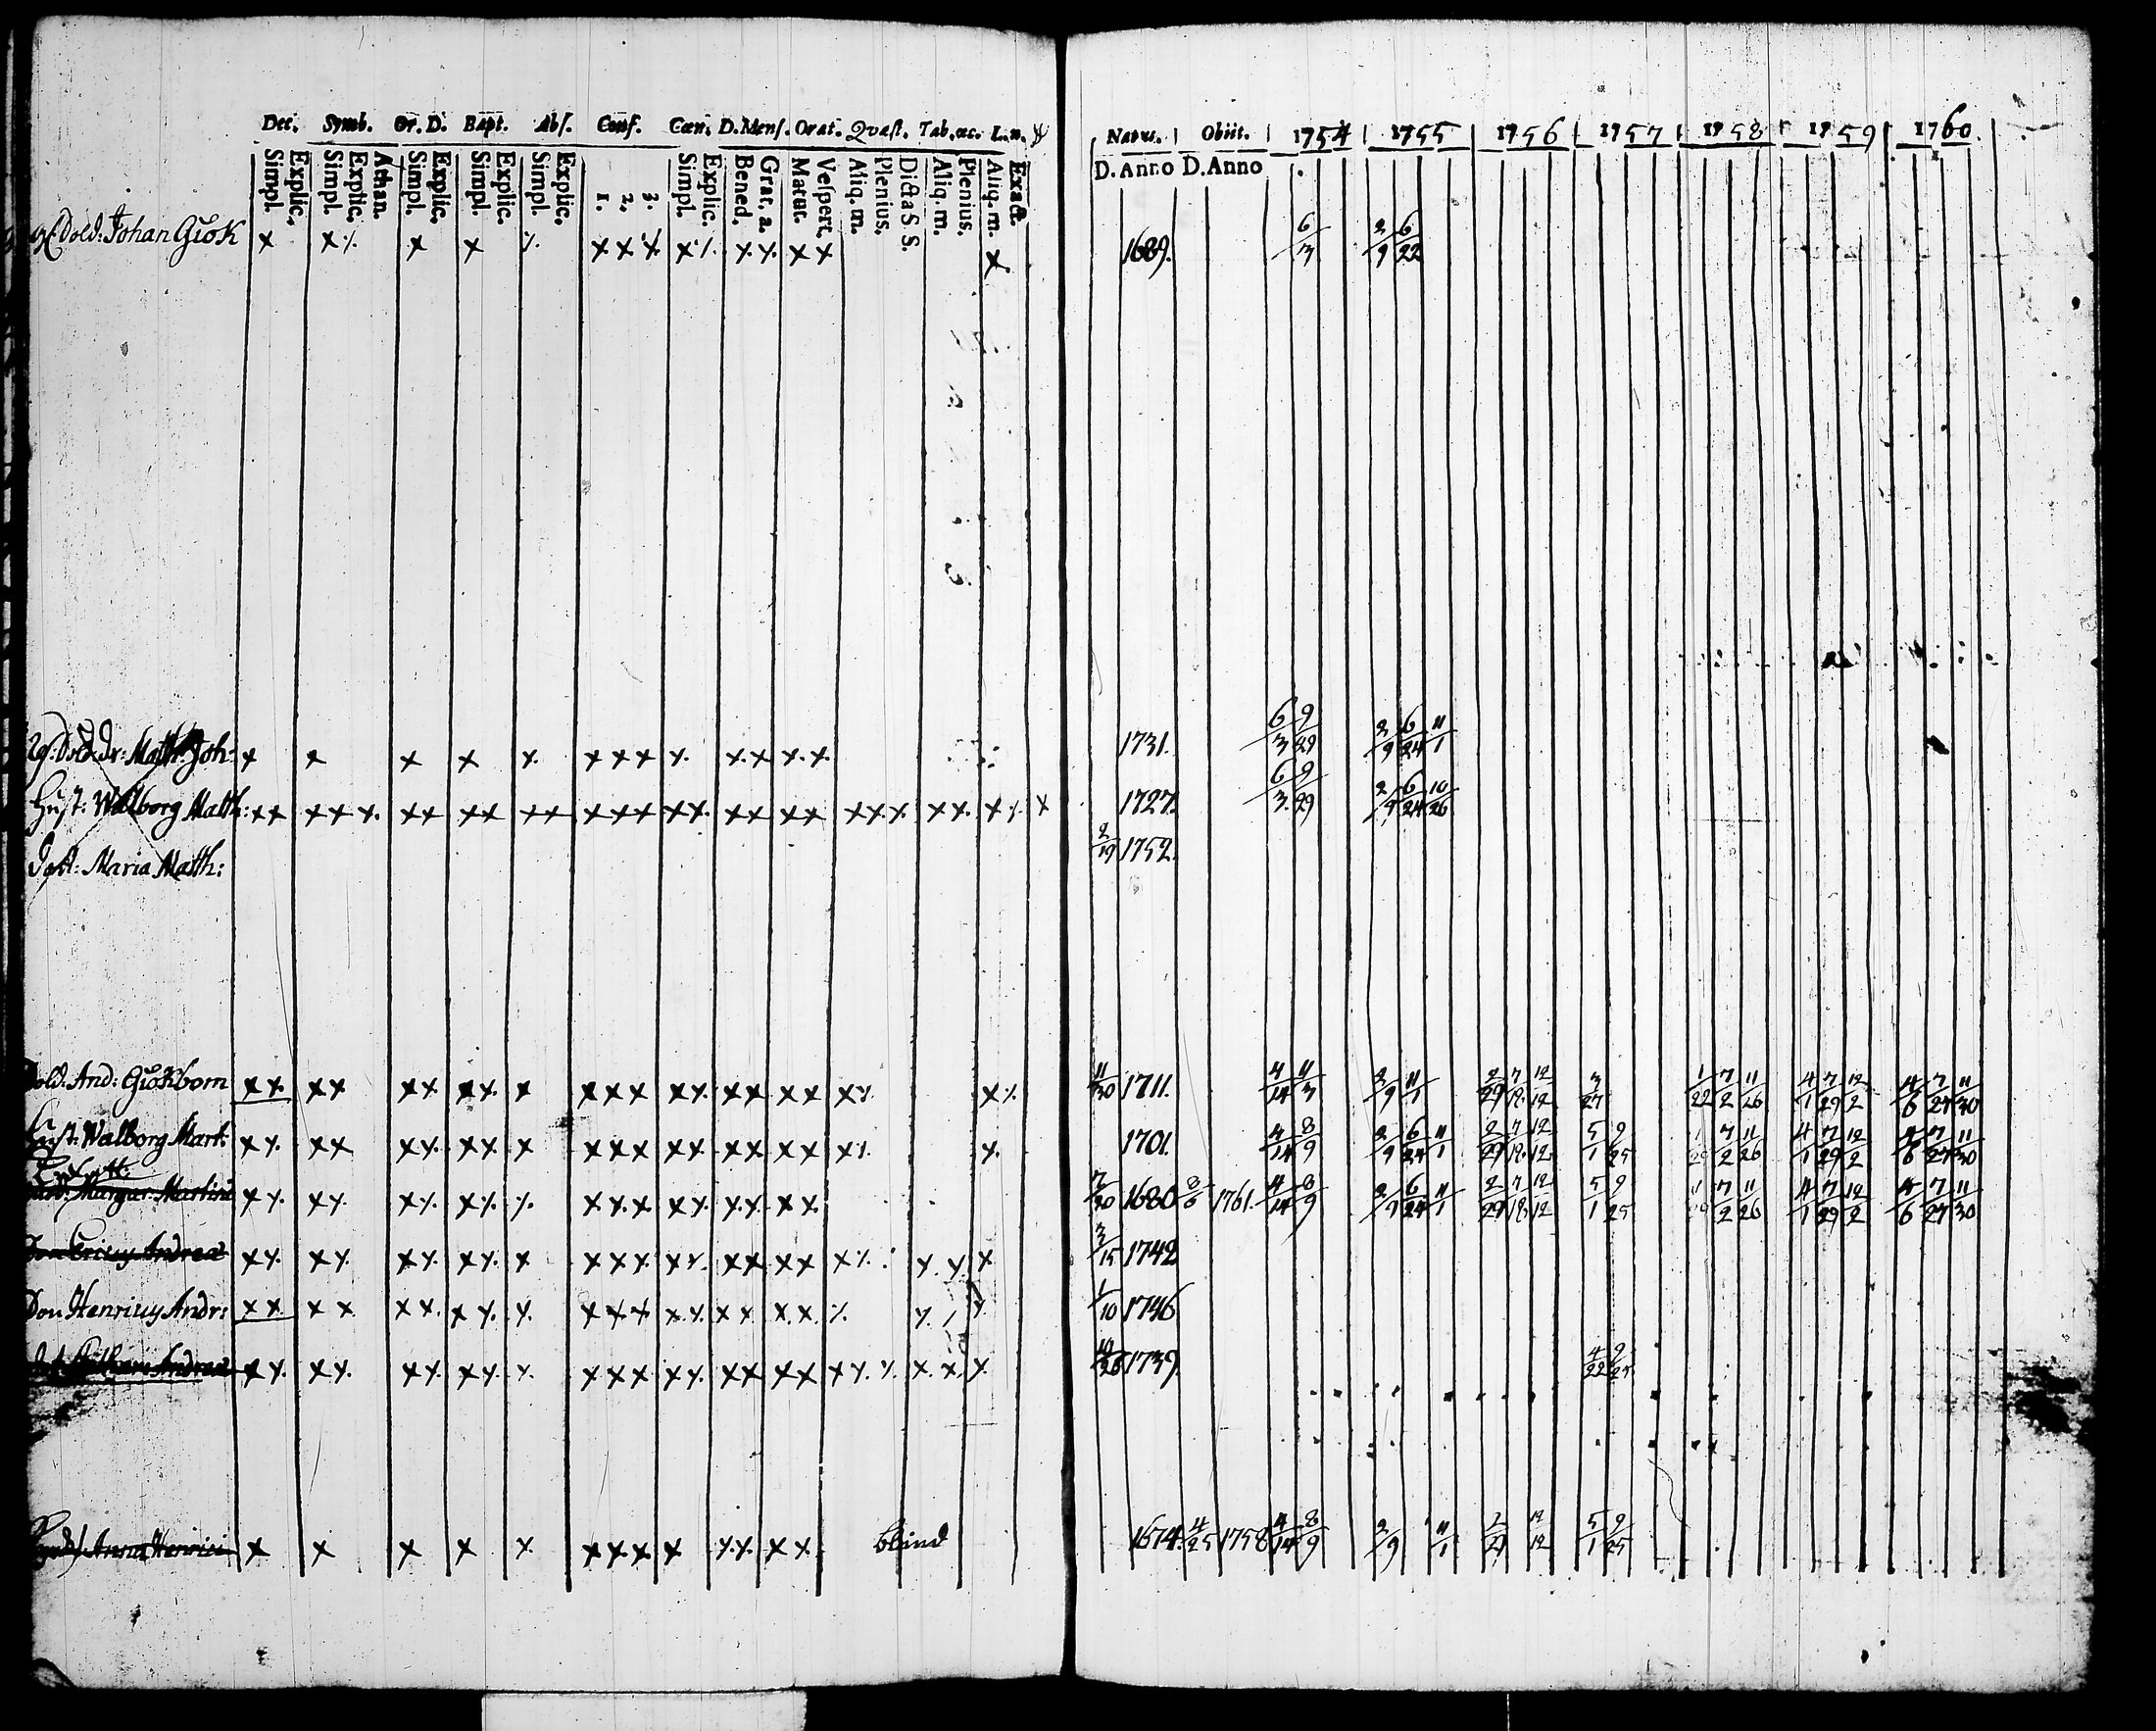 Dec. Symb. Or. D. Bapt. Abs. Conf. Cœn. D. Mens. Orat. Qvæst. Tab. œc. L. n.
Simpl. Explic. Simpl. Explic. Athan. Simpl. Explic. Simpl. Explic. Simpl. Explic. 1. 2. 3. Simpl. Explic. Bened. Grat. a. Matut. Vespert. Aliq. m. Plenius. Dicta S. S. Aliq. m. Plenius. Aliq. m. Exact.
Natus. Obiit. 1754 1755 1756 1757 1758 1759 1760.
D. Anno D. Anno
Sold: Johan Giök x x ⁒ x x ⁒ x x x x ⁒ x x x x x 1689. 6/3 2/9 6/22
Matth: Joh: x x x x x x x x x x x x x 1731. 6/3 9/29 2/9 6/24 11/1
Hust: Walborg Matth: xx xxx xx xx xx xxx xx xx xx xxx xx x⁒ x 1727. 6/3 9/29 2/9 6/24 10/26
Dott: Maria Matth: 2/19 1752.
Sold: And: Giökbom xx xx xx xx x xxx xx xx xx x⁒ x⁒ 11/30 1711. 4/14 11/3 2/9 11/1 2/29 7/18 12/12 3/27 1/22 7/2 11/26 4/1 7/29 12/2 4/6 7/27 11/30
Hust: Walborg Mart: xx xx xx xx x xxx xx xx xx x⁒ x. 1701. 4/14 8/9 2/9 6/24 11/1 2/29 7/18 12/12 5/1 9/25 7/2 11/26 4/1 7/29 12/2 4/6 7/27 11/30
Margar: Martini xx xx xx xx ⁒ xxx xx xx xx 7/20 1680 3/8 1761. 4/14 8/9 2/9 6/24 11/1 2/29 7/18 12/12 5/1 9/25 7/2 11/26 4/1 7/29 12/2 4/6 7/27 11/30
Son Ericus Andreæ xx xx xx xx x xxx xx xx xx x⁒ x x x 3/15 1742
Son Henricus Andr: xx xx xx xx x xxx xx xx xx ⁒ 1/10 1746
Andreæ xx xx xx xx x xxx xx xx xx xx ⁒ x x x 10/26 1739. 4/22 9/25
Anna Henrici x x x x x xxx x xx xx blind 1674. 4/25 1758 4/14 8/9 2/9 11/1 12/12 5/1 9/25